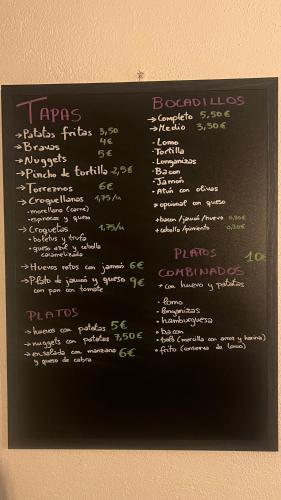 TAPAS
→Patatas fritas 3,50
→Bravas 4€
→Nuggets 5€
→Pincho de tortilla 2,5€
→Torreznos 6€
→Croquellanas 1,75/u
- morellana (carne)
- espinacas y queso
→Croquetas 1,75/u
- boletus y trufa
- queso azul y cebolla caramelizada
→Huevos rotos con jamón 6€
→Plato de jamón y queso 9€
con pan con tomate
PLATOS
→huevos con patatas 5€
→nuggets con patatas 7,50€
→ensalada con manzana 6€
y queso de cabra
BOCADILLOS
→Completo 5,50€
→Medio 3,50€
• Lomo
• Tortilla
• Longanizas
• Bacon
• Jamón
• Atún con olivas
* opcional con queso
+bacon/jamón/huevo 0,50€
+cebolla/pimiento 0,30€
PLATOS 10€
COMBINADOS
* con huevo y patatas
• lomo
• longanizas
• hamburguesa
• bacon
• frito (conserva de lomo)